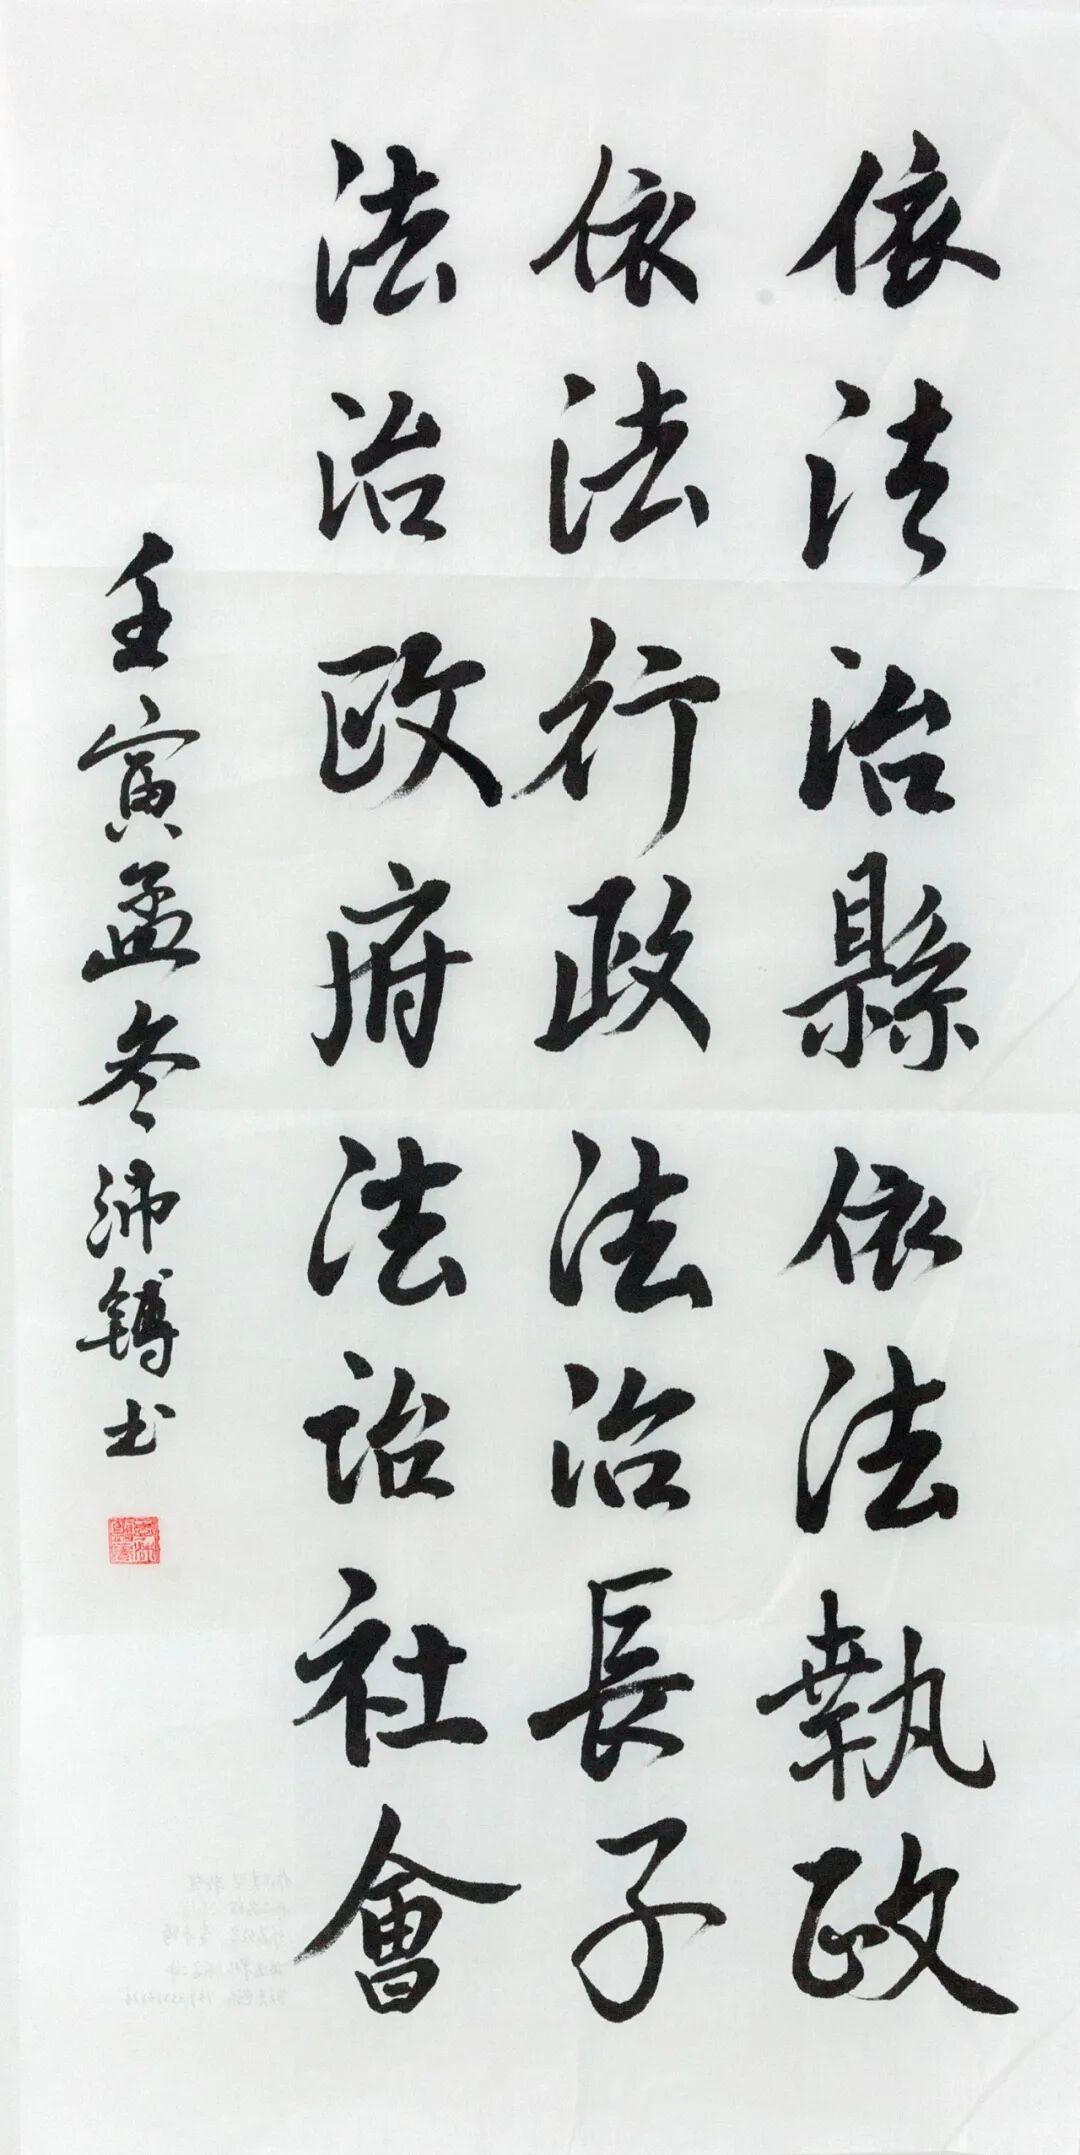 依法治縣依法執政
依法行政法治長子
法治政府法治社會
壬寅孟冬沛鎛书